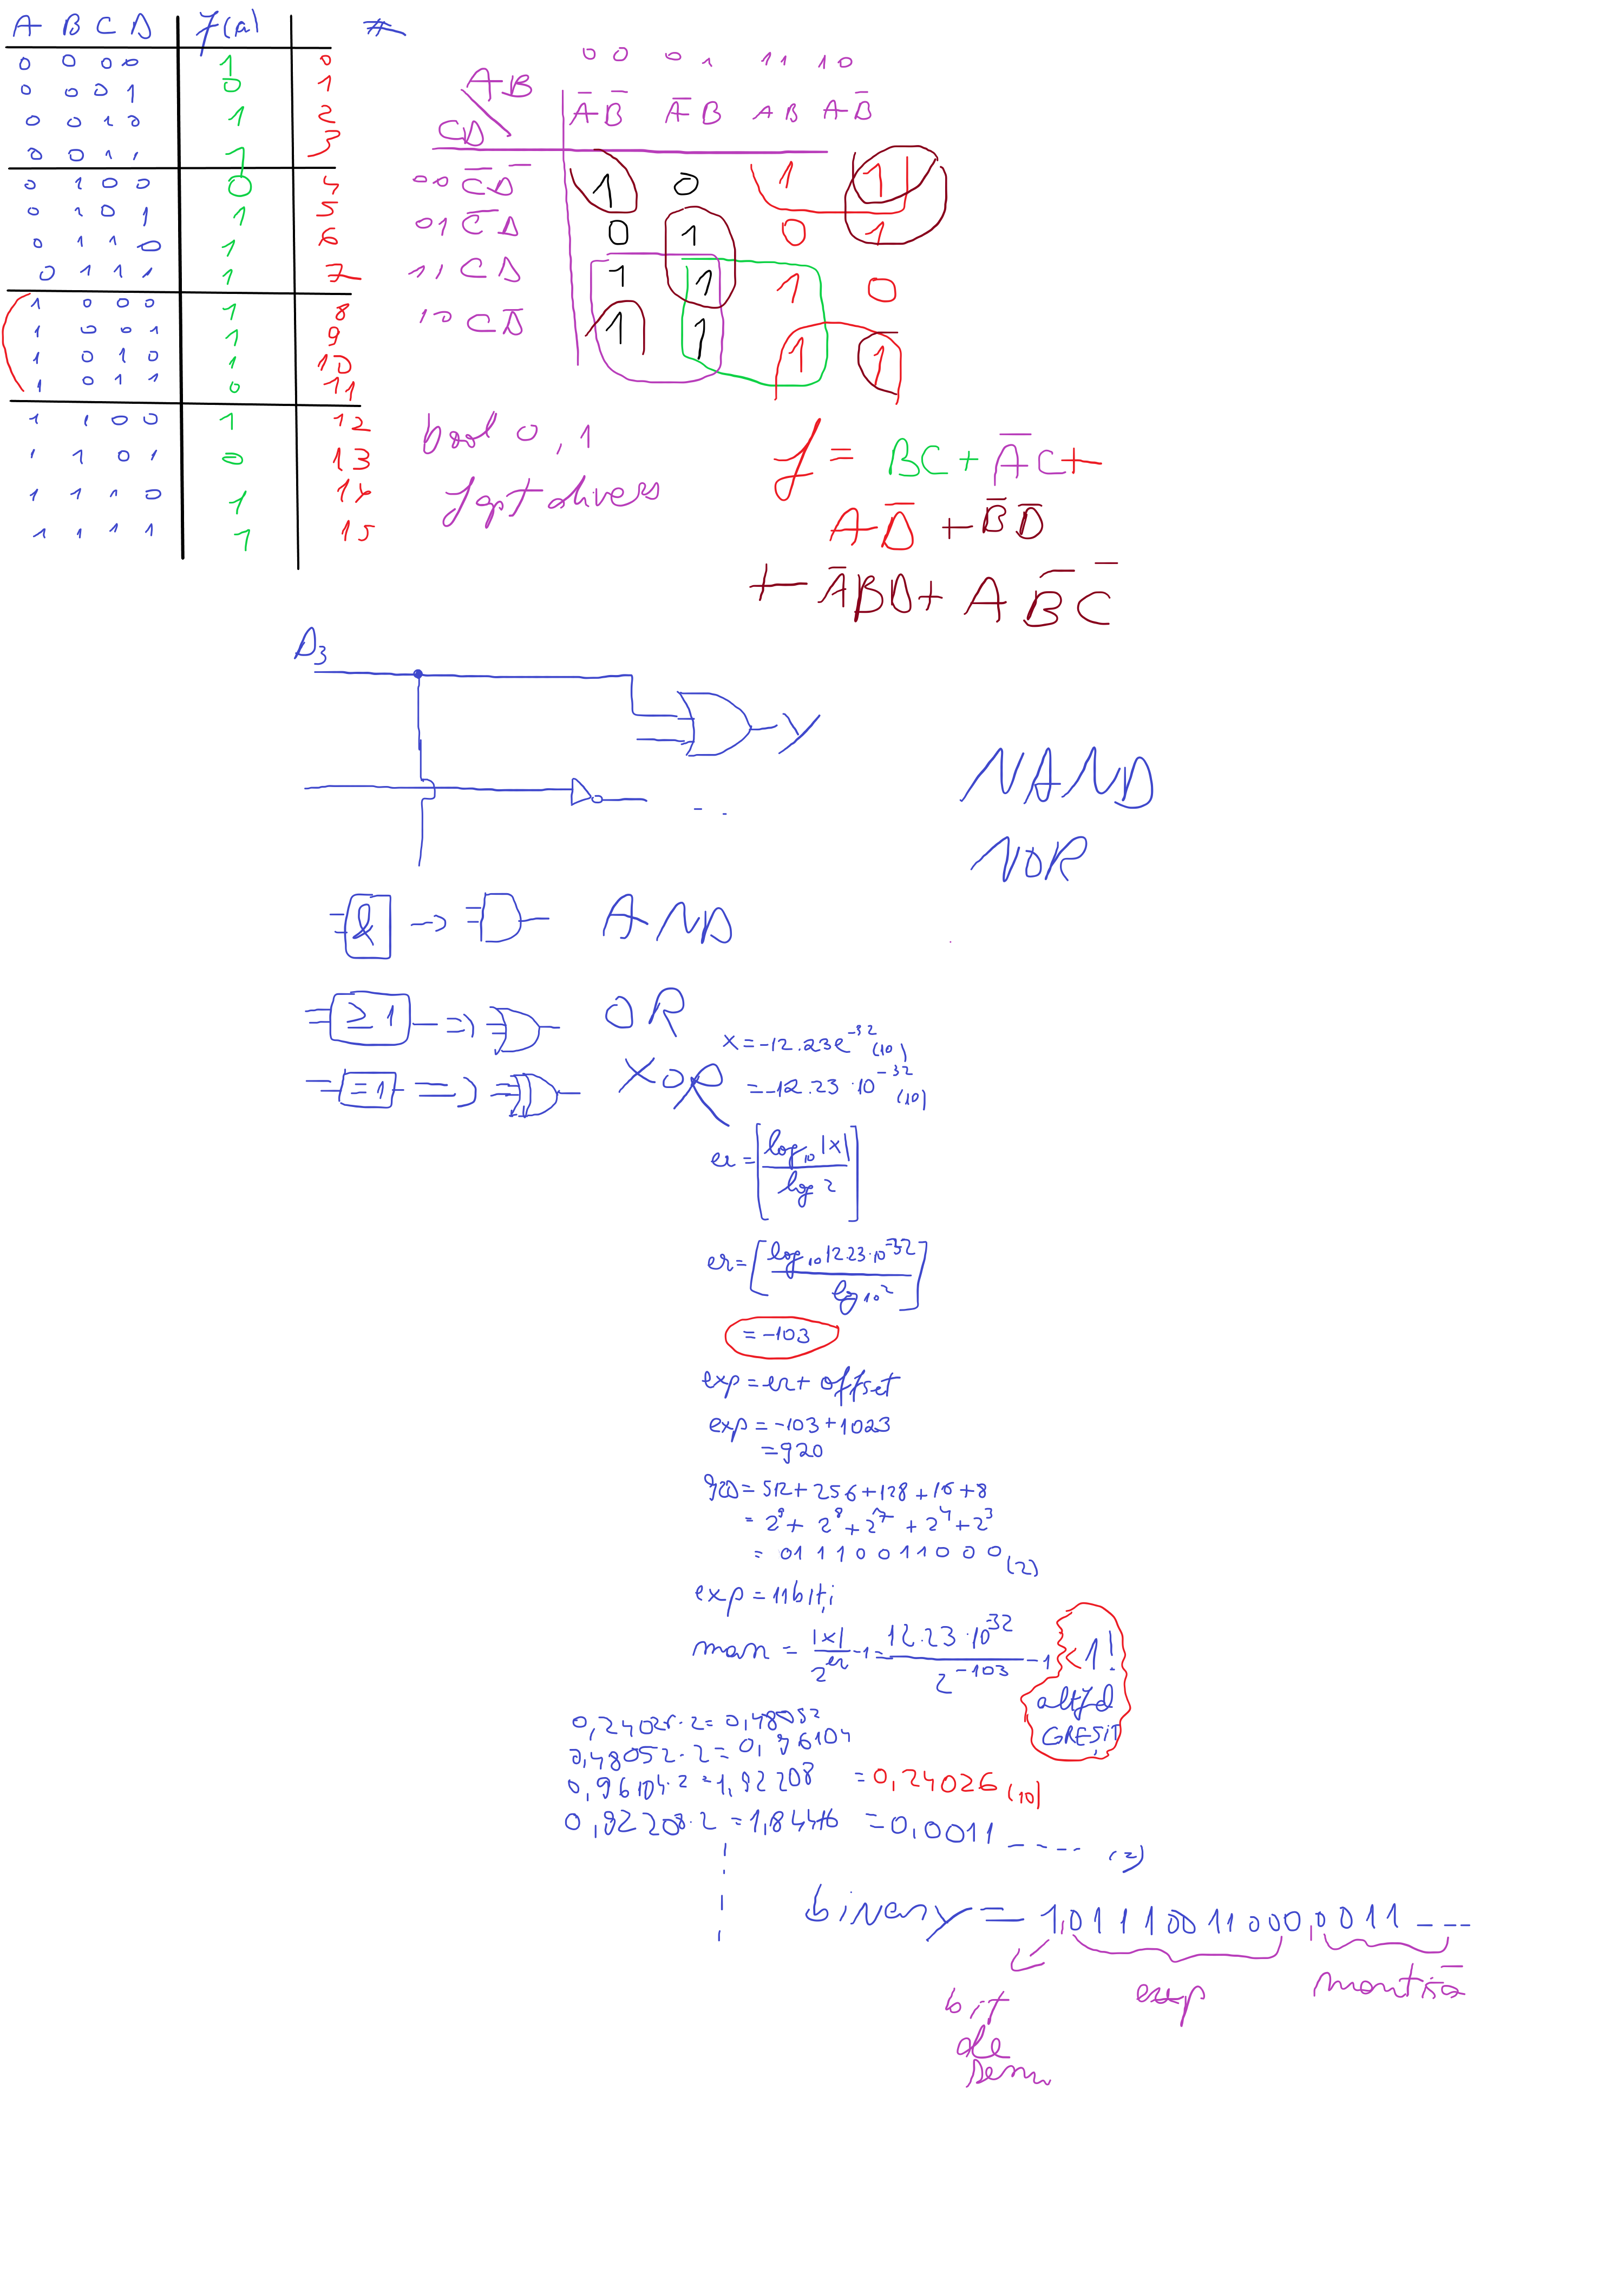 A B C D f(a) #
0 0 0 0 1 0
0 0 0 1 0 1
0 0 1 0 1 2
0 0 1 1 1 3
0 1 0 0 0 4
0 1 0 1 1 5
0 1 1 0 1 6
0 1 1 1 1 7
1 0 0 0 1 8
1 0 0 1 1 9
1 0 1 0 1 10
1 0 1 1 0 11
1 1 0 0 1 12
1 1 0 1 0 13
1 1 1 0 1 14
1 1 1 1 1 15
00 01 11 10
AB
CD
A̅B̅ A̅B AB AB̅
00 C̅D̅ 1 0 1 1
01 C̅D 0 1 0 1
11 CD 1 1 1 0
10 CD̅ 1 1 1 1
bool 0,1
f = BC + A̅C +
AD̅ + B̅D̅
+ A̅BD + AB̅C̅
D₃
Y
NAND
NOR
& → AND
≥1 => OR
=1 => XOR
x = -12.23e⁻³² (10)
= -12.23·10⁻³² (10)
er = [log₁₀|x| / log 2]
er = [log₁₀12.23·10⁻³² / lg₁₀2]
= -103
exp = er + offset
exp = -103 + 1023
= 920
920 = 512 + 256 + 128 + 16 + 8
= 2⁹ + 2⁸ + 2⁷ + 2⁴ + 2³
= 01110011000 (2)
exp = 11 biți
man = |x| / 2^er - 1 = 12.23·10⁻³² / 2⁻¹⁰³ - 1 < 1!
altfel
GREȘIT
0,24026·2 = 0,48052
0,48052·2 = 0,96104
0,96104·2 = 1,92208 = 0,24026 (10)
0,92208·2 = 1,84416 = 0,0011 ---- (2)
binary = 1,01110011000,0011 ---
bit
de
semn
exp
mantisă